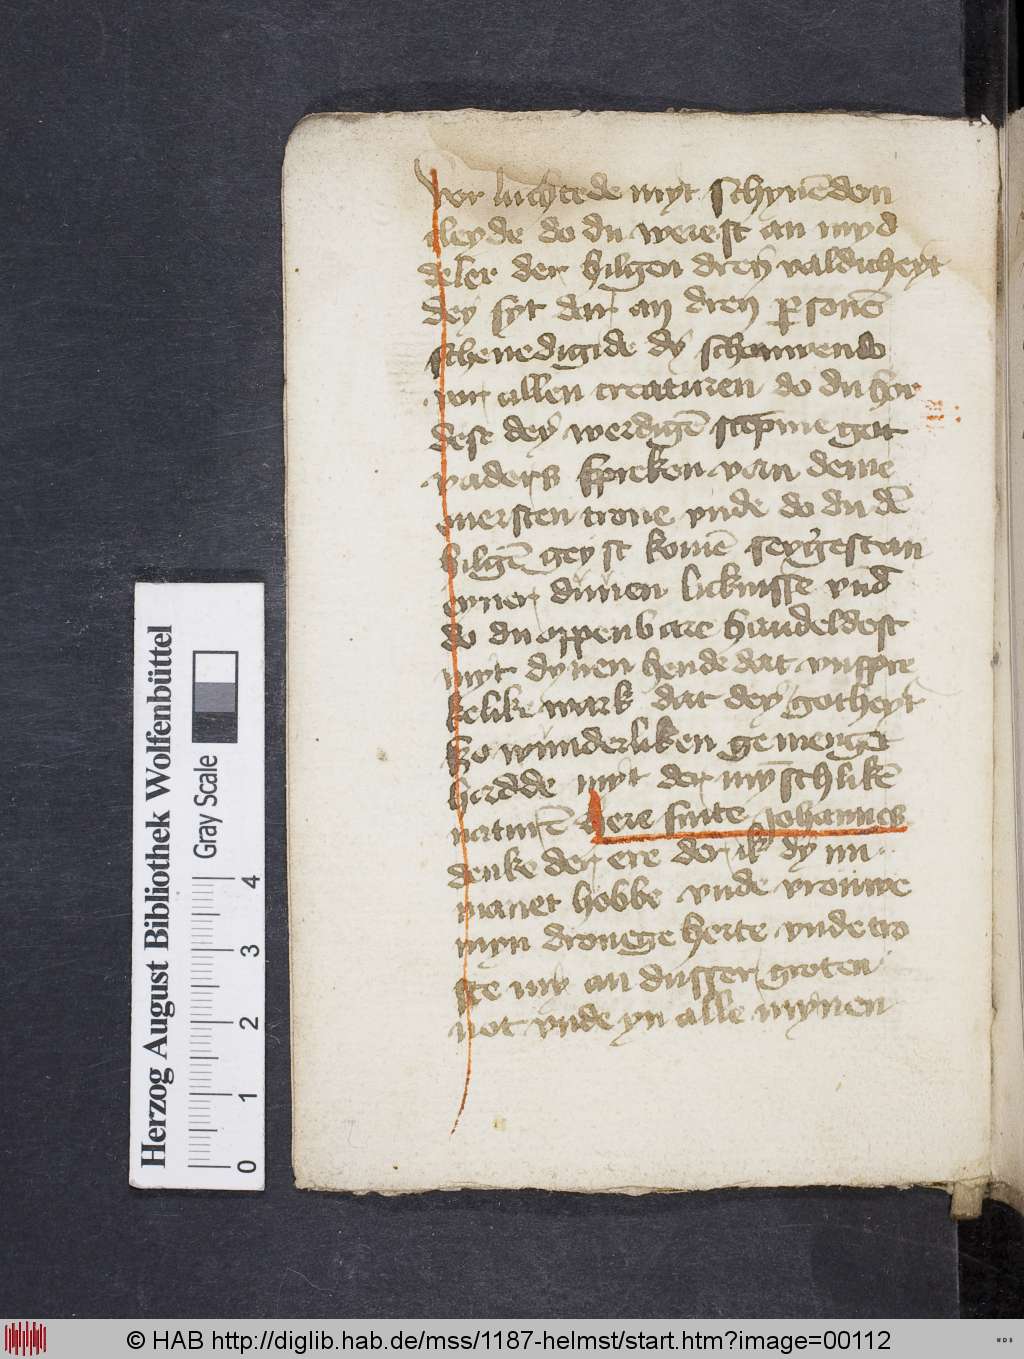 vor luchtede myt schynēdem
cleyde do du werest an myd
deler der hilgen dreyvaldicheyt
dey syt dar an dren ꝑsonē
dy schouwende
vor allen creaturen do du hor
dest dey werdigē stēpme got
vaders spreken van deme
ouersten trone vnde do du dē
hilgē geyst komē seygest an
eyner duuen licknisse vnd
do du oppenbare handeldest
myt dynen hende dat vnspre
kelike wark dat dey gotheyt
so wunderliken gemenget
hadde myt der mȳschlikē
naturē here sunte Johannes
denke der ere der ik dy nu
manet hebbe vnde vrouwe
myn drouege herte vnde tro
ste my an dusser groten
not vnde yn alle mynen
Herzog August Bibliothek Wolfenbüttel
Gray Scale
0 1 2 3 4
© HAB http://diglib.hab.de/mss/1187-helmst/start.htm?image=00112